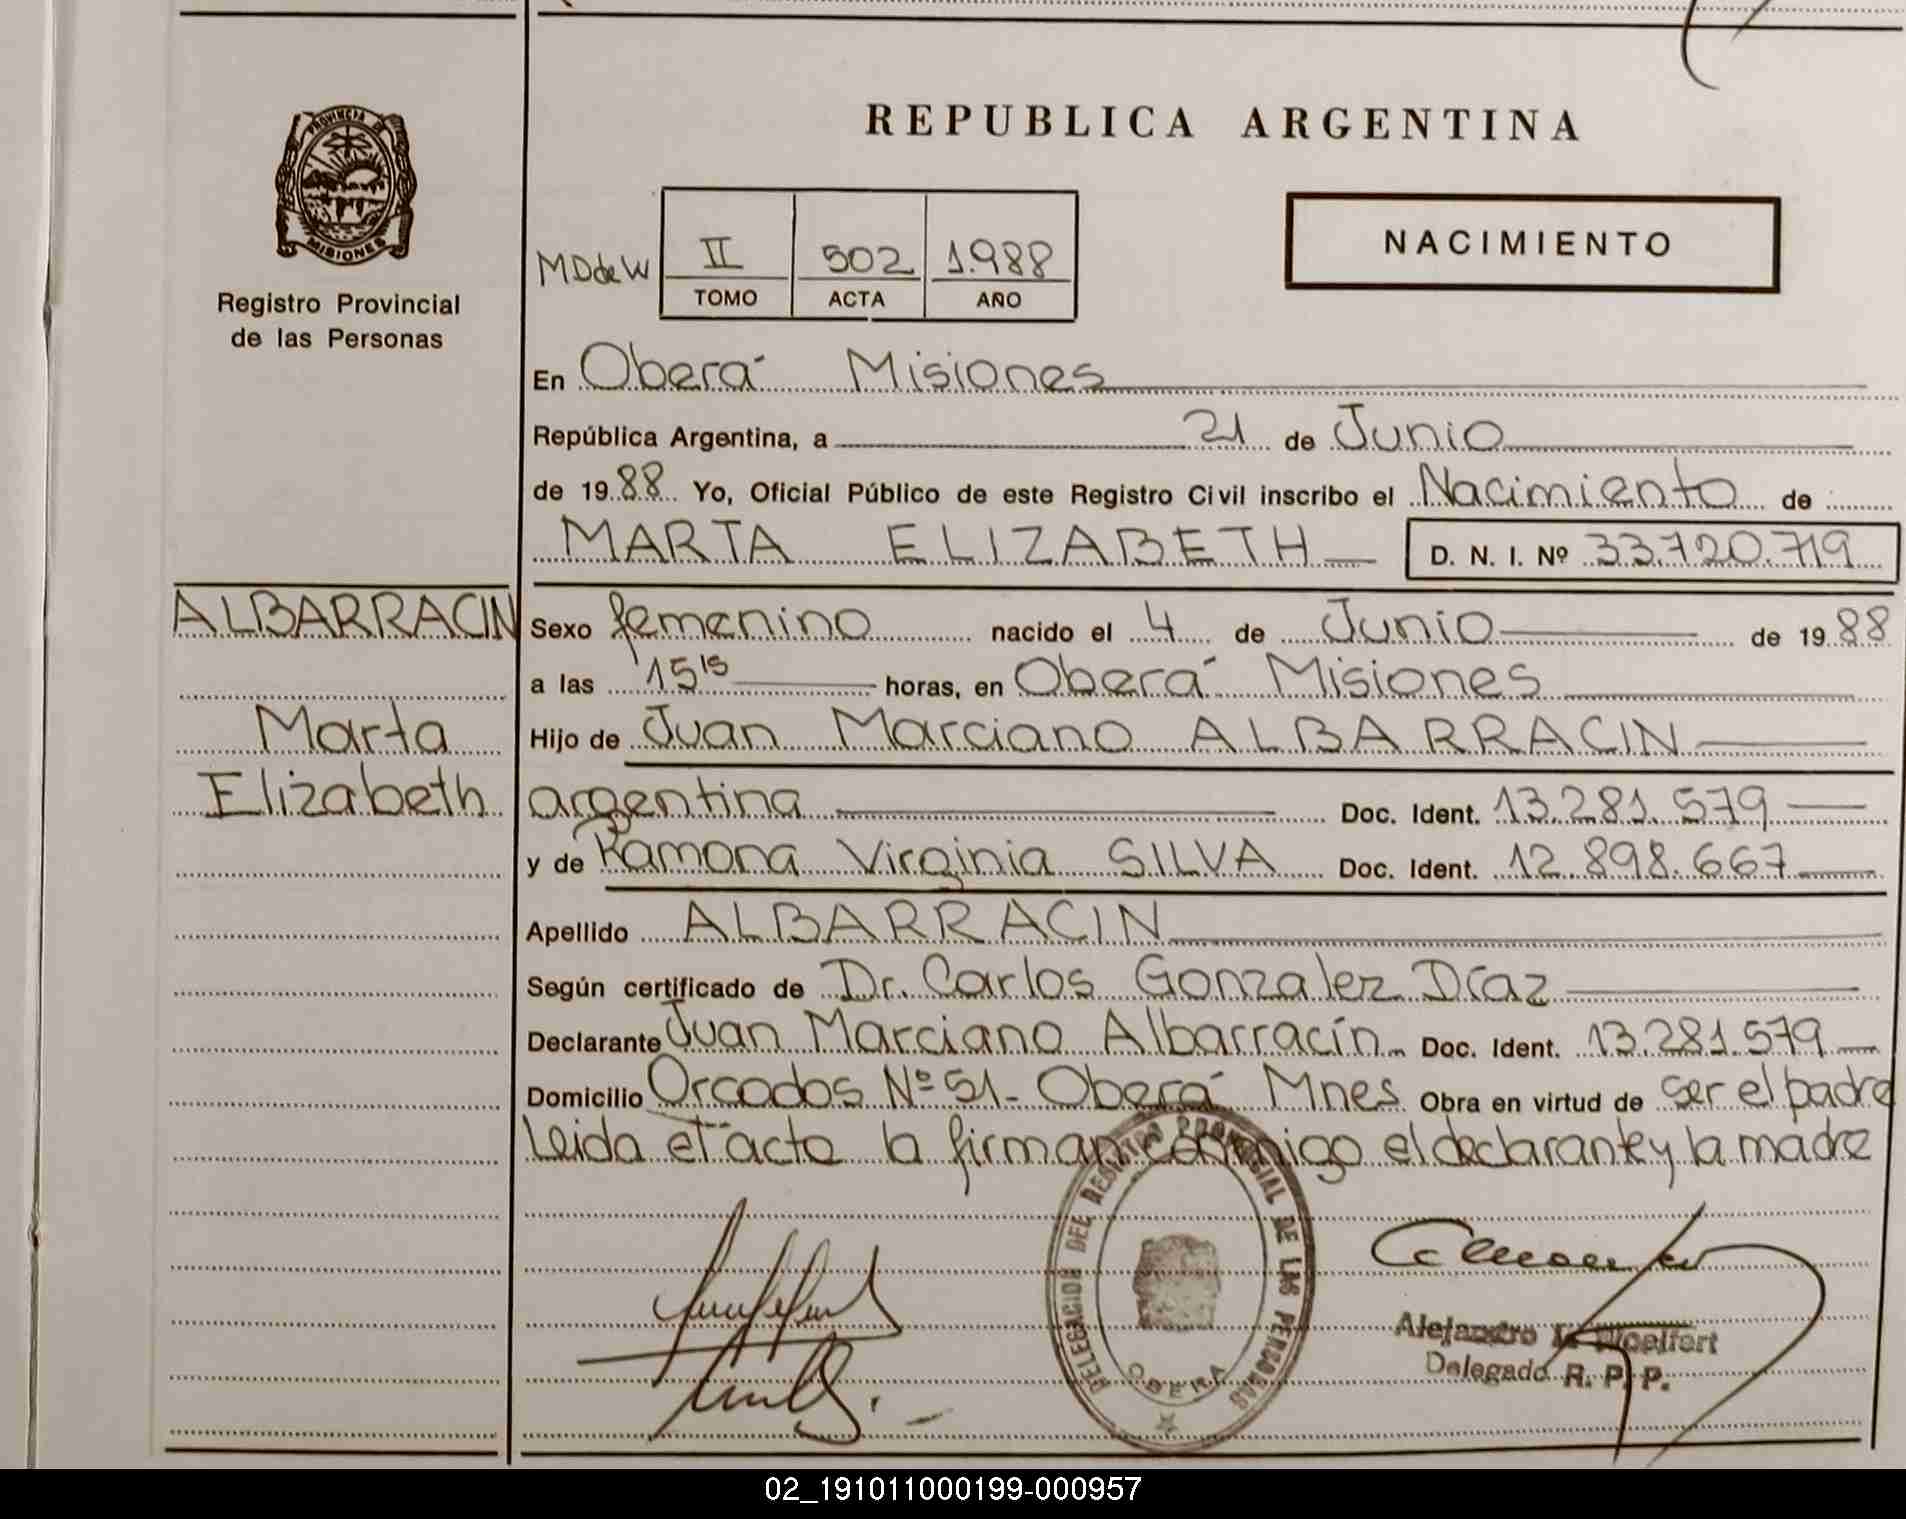 REPUBLICA ARGENTINA
PROVINCIA DE
MISIONES
Registro Provincial
de las Personas
MDdeW
II 502 1.988
TOMO ACTA AÑO
NACIMIENTO
En Oberá Misiones
República Argentina, a 21 de Junio
de 19 88 Yo, Oficial Público de este Registro Civil inscribo el Nacimiento de
MARTA ELIZABETH D. N. I. Nº 33.720.719
ALBARRACIN
Marta
Elizabeth
Sexo femenino nacido el 4 de Junio de 19 88
a las 15 15 horas, en Oberá Misiones
Hijo de Juan Marciano ALBARRACIN
argentina Doc. Ident. 13.281.579
y de Ramona Virginia SILVA Doc. Ident. 12.898.667
Apellido ALBARRACIN
Según certificado de Dr. Carlos Gonzalez Díaz
Declarante Juan Marciano Albarracín Doc. Ident. 13.281.579
Domicilio Orcodos Nº 51 - Oberá Mnes Obra en virtud de ser el padre
Leida el acta la firman conmigo el declarante y la madre
DELEGACION DEL REGISTRO PROVINCIAL DE LAS PERSONAS
OBERA
Alejandro Woelfert
Delegado R. P. P.
02_191011000199-000957